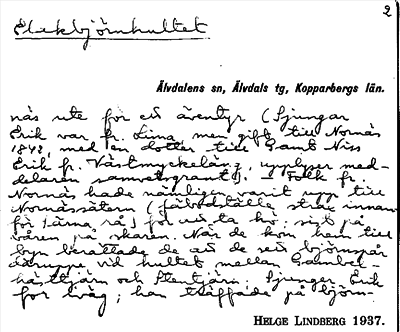 2
Elakbjörnhultet
Älvdalens sn, Älvdals tg, Kopparbergs län.
nås ute för ett äventyr (Sjungar
Erik var fr. Lima, men gift till Nornäs
1848 med en dotter till Gamt Niss
Erik fr. Västmyckeläng, upplyser med-
delaren samvetsgrant). – Folk fr.
Nornäs hade nämligen varit upp till
Nornässätern (fäbodställe strax innan-
för Särna rå) för att ta hö, sist på
våren på skaren. När de kom hem till
byn berättade de att de sett björnspår
däruppe vid hultet mellan Gambel-
hästtjärn och Stentjärn. Sjungar Erik
for iväg; han träffade på björn-
HELGE LINDBERG 1937.